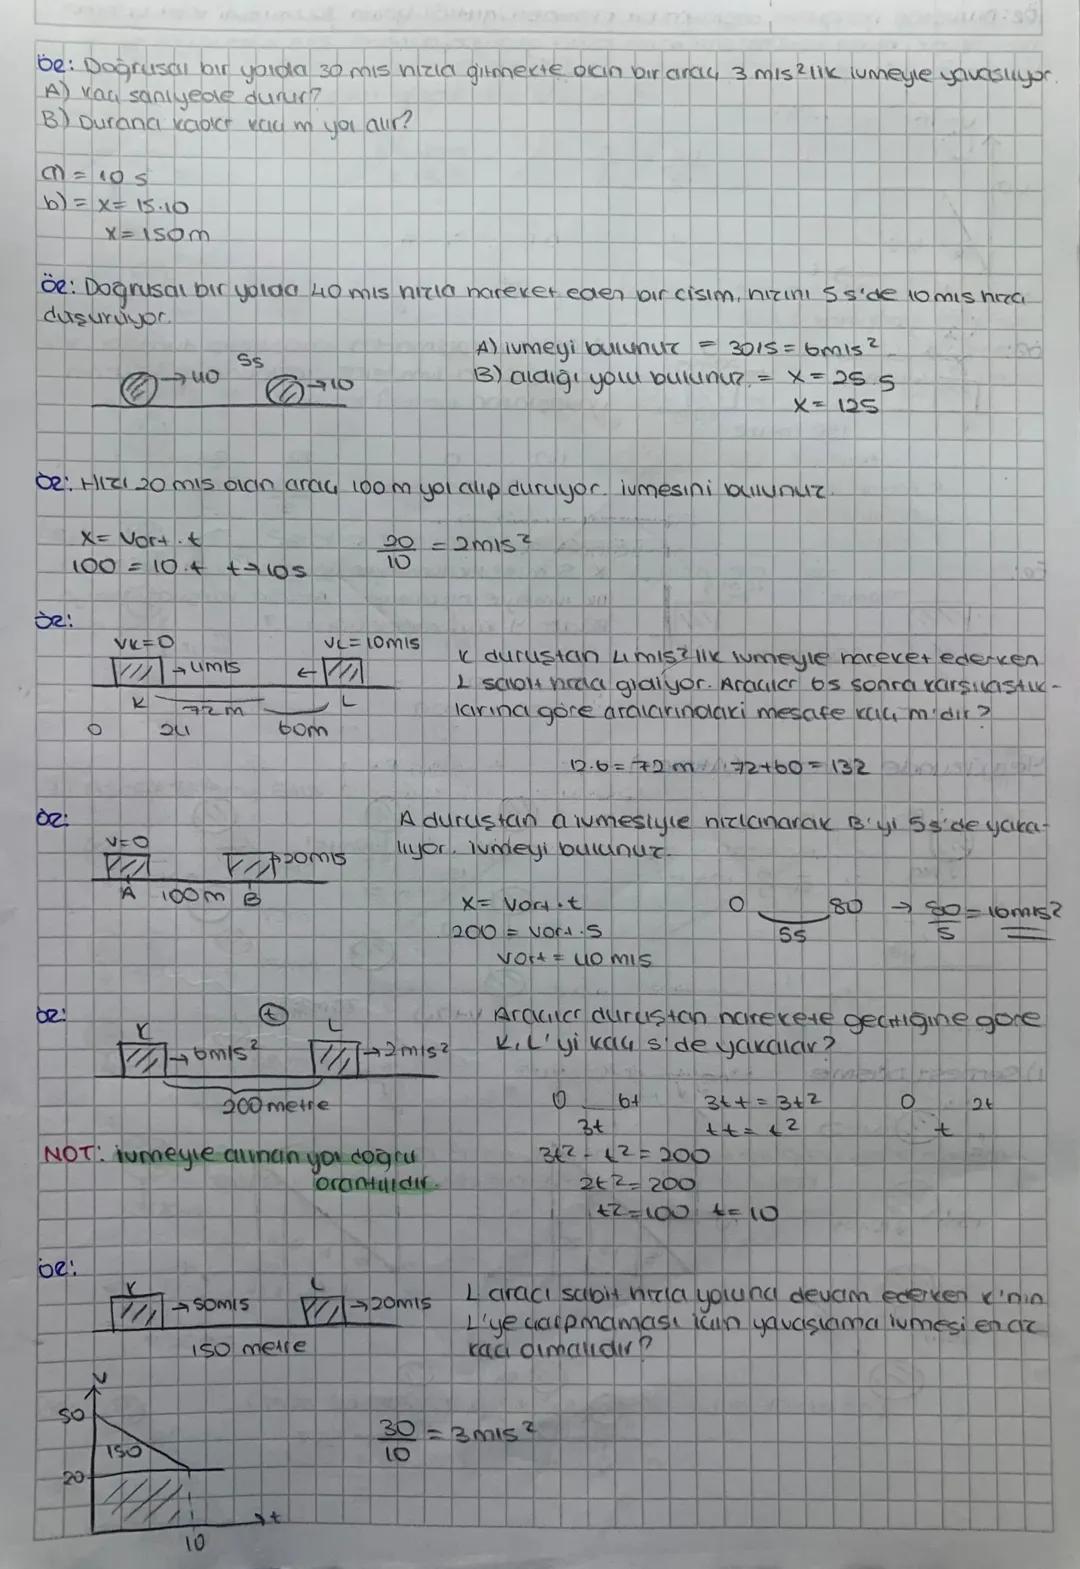 Ör: Doğrusal bir yolda 30 m/s hızla gitmekte olan bir araç 3 m/s² lik ivmeyle yavaşlıyor.
A) Kaç saniyede durur?
B) Durana kadar kaç m yol alır?
a) = 10 s
b) = x = 15.10
x = 150m
Ör: Doğrusal bir yolda 40 m/s hızla hareket eden bir cisim, hızını 5 s'de 10 m/s hıza
düşürüyor.
A) ivmeyi bulunuz = 30/5 = 6m/s²
B) aldığı yolu bulunuz. = x = 25.5
x = 125
5s
→40
→10
Ör: Hızı 20 m/s olan araç 100 m yol alıp duruyor. ivmesini bulunuz.
x = Vort.t
100 = 10.t t→10s
20/10 = 2m/s²
Ör:
VK=0 VL=10m/s
→4m/s ←
K 72m L
0 24 60m
K duruştan 4 m/s² lik ivmeyle hareket ederken
L sabit hızla gidiyor. Araçlar 6s sonra karşılaştık-
larına göre aralarındaki mesafe kaç m'dir?
12.6 = 72 m 72+60 = 132
Ör:
V=0
→20m/s
A 100m B
A duruştan a ivmesiyle hızlanarak B'yi 5s'de yaka-
lıyor. ivmeyi bulunuz.
x = Vort.t
200 = Vort.5
Vort = 40 m/s
0 80 → 80/5 = 16m/s²
5s
Ör:
K t L
→6m/s² →2m/s²
200 metre
Araçlar duruştan harekete geçtiğine göre
K, L'yi kaç s'de yakalar?
0 6t 3t.t = 3t² 0 2t
3t t.t = t² t
3t² - t² = 200
2t² = 200
t² = 100 t = 10
NOT: ivmeyle alınan yol doğru
orantılıdır.
Ör:
K L
→50m/s →20m/s
150 metre
L aracı sabit hızla yoluna devam ederken K'nin
L'ye çarpmaması için yavaşlama ivmesi en az
kaç olmalıdır?
V
50
150
20
10
→t
30/10 = 3m/s²